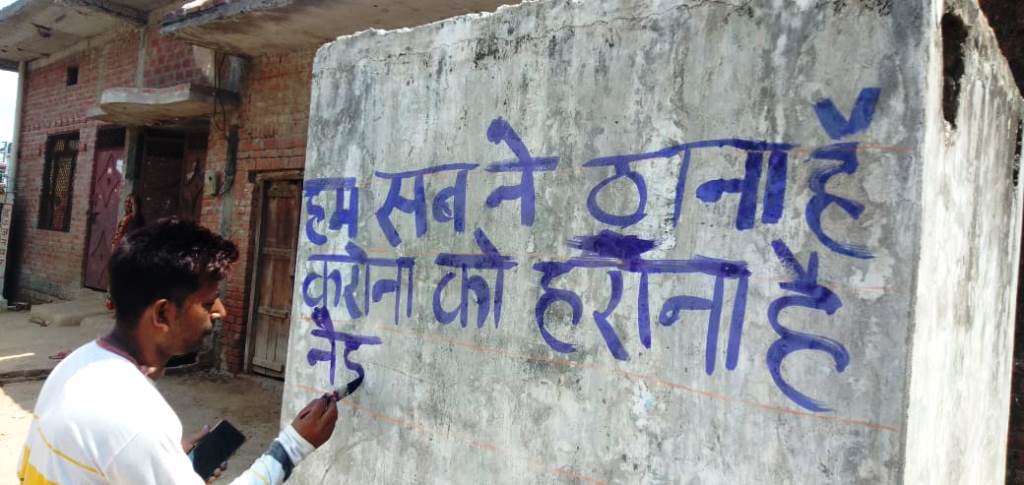 हम सब ने ठाना है
करोना को हराना है
नेड